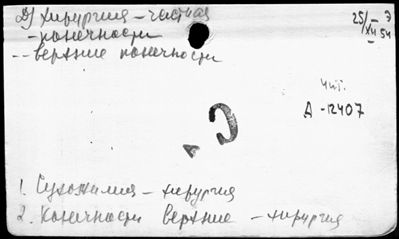 Д) хирургия - частная
- конечности
-- верхние конечности
25/XII 54 - Э
чит.
Д-12407
1. Сухожилия - хирургия
2. Конечности верхние - хирургия